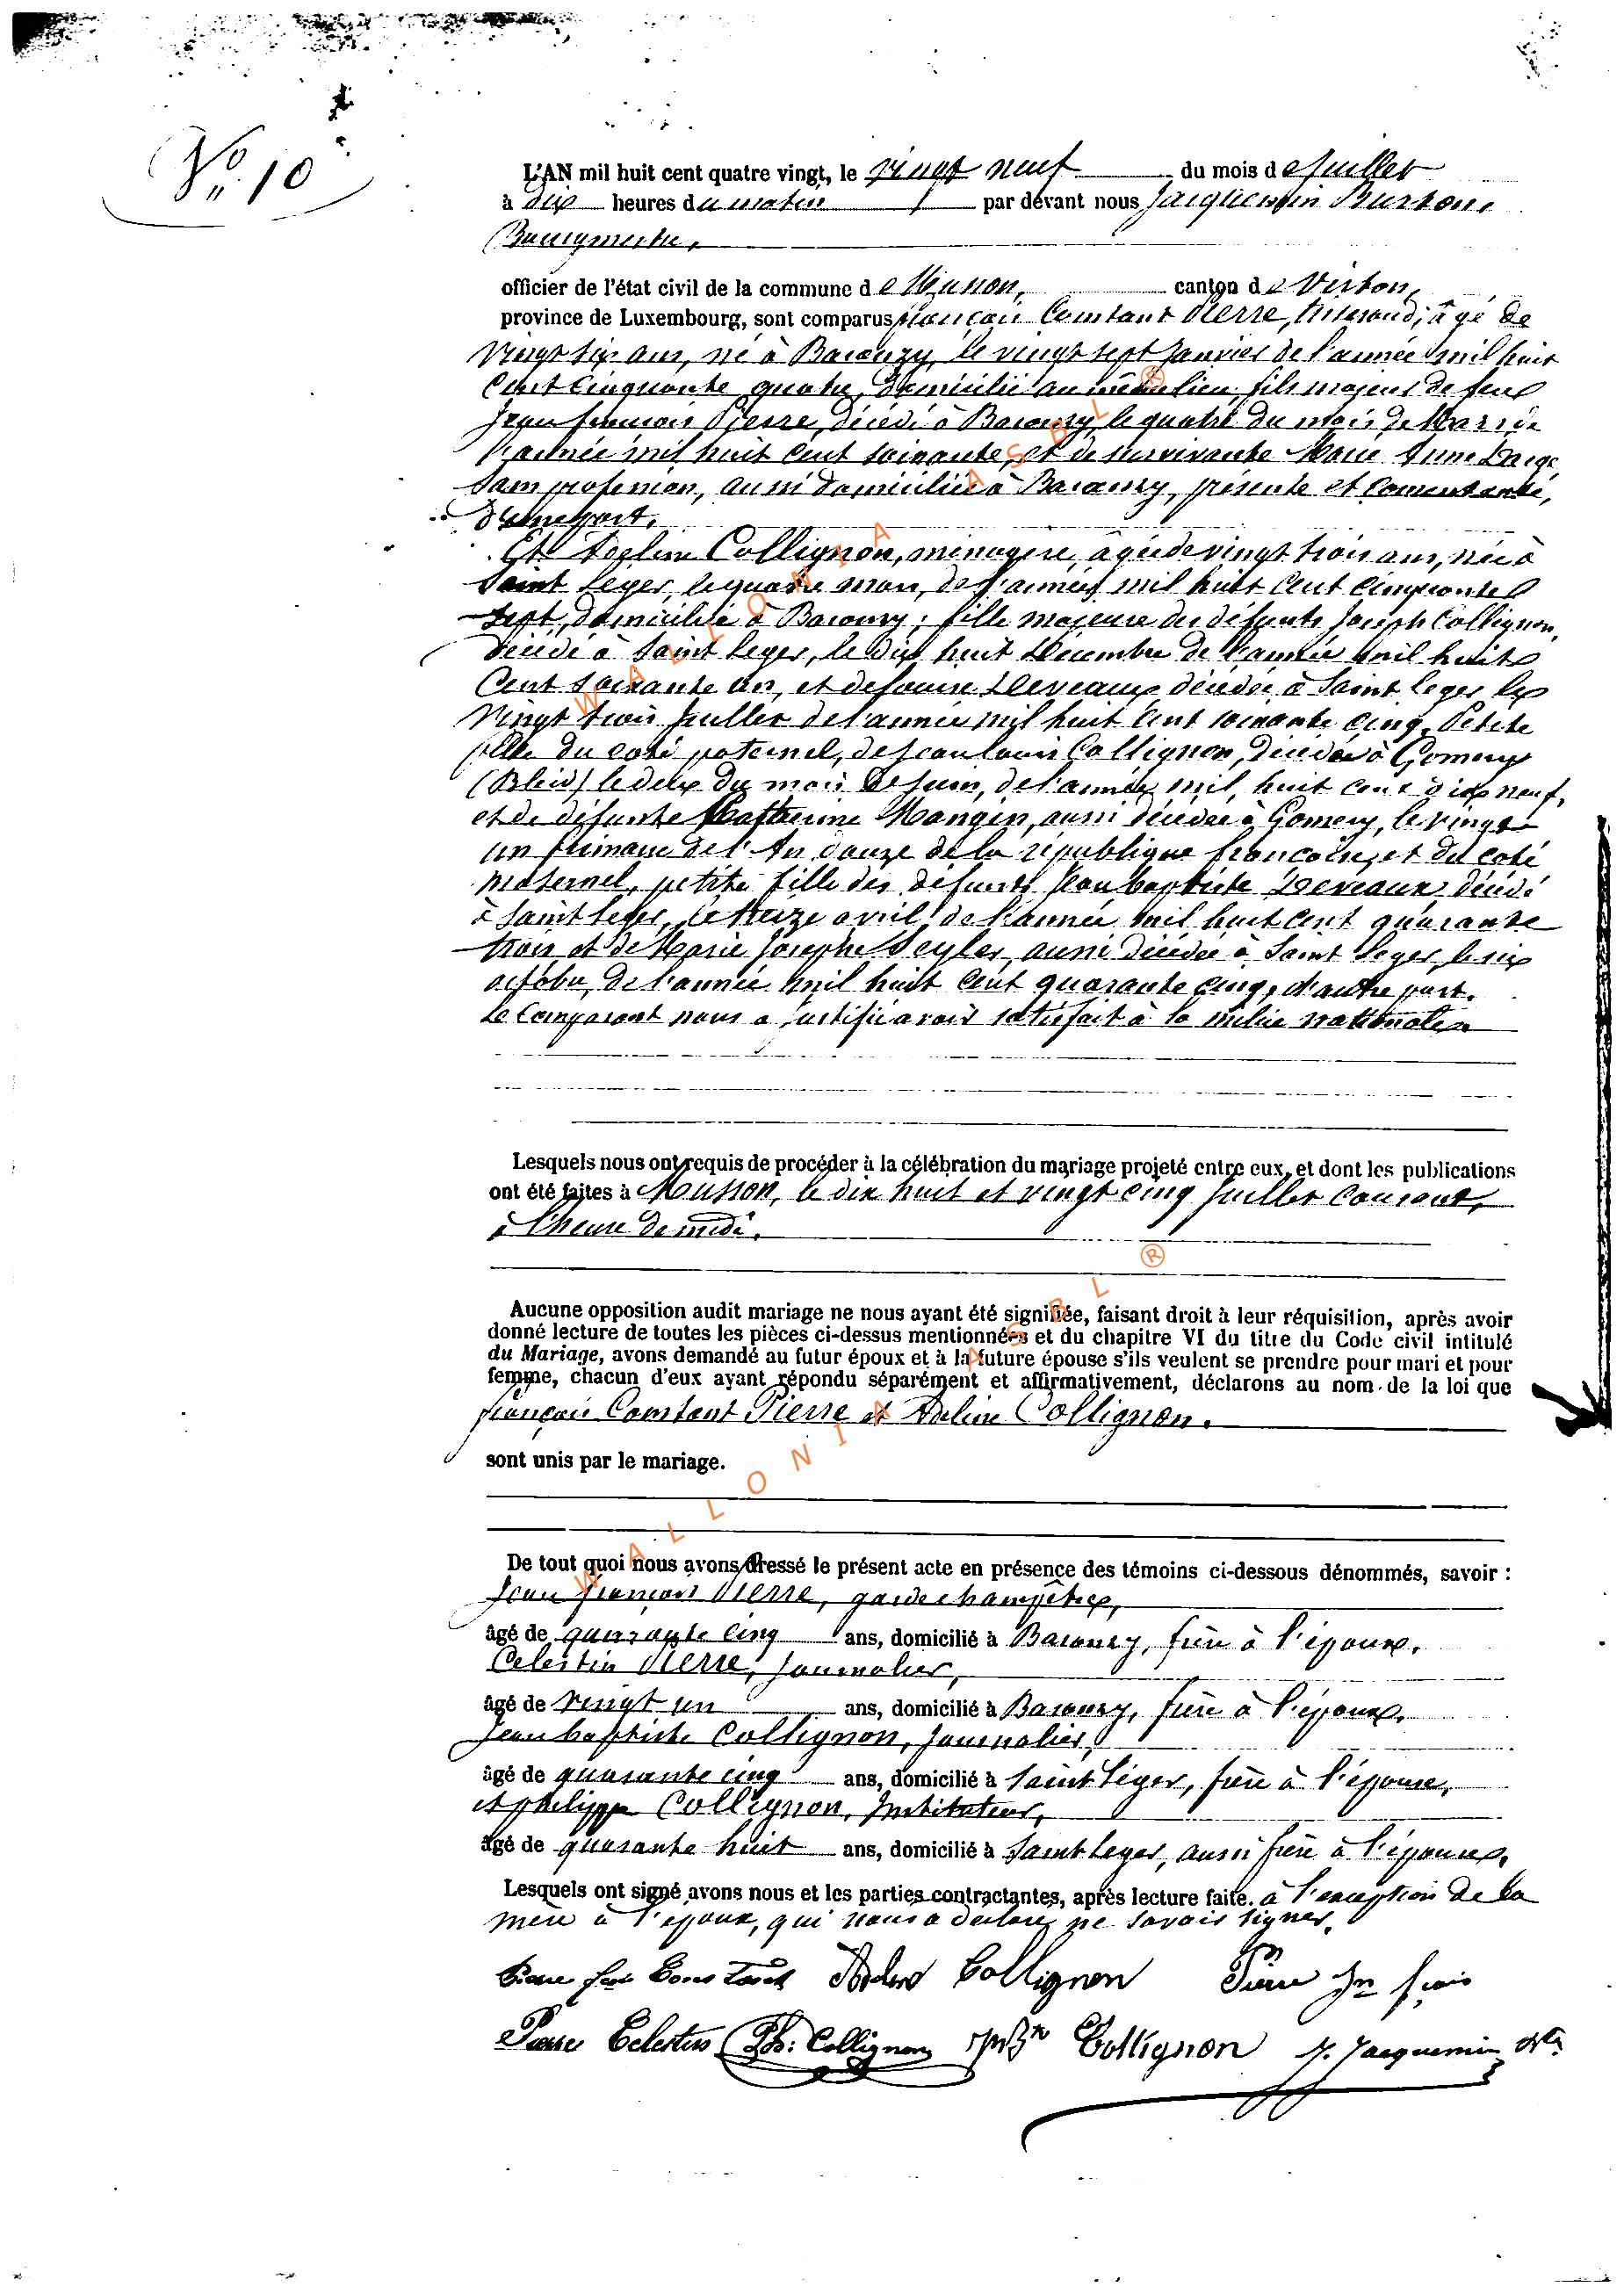 No 10
L'AN mil huit cent quatre vingt, le vingt neuf du mois de Juillet
à dix heures du matin par devant nous Jacquemin Burton,
Bourgmestre,
officier de l'état civil de la commune de Musson, canton de Virton,
province de Luxembourg, sont comparus françois Constant Pierre, âgé de
vingt six ans, né à Baranzy, le vingt sept Janvier de l'année mil huit
cent cinquante quatre, domicilié au même lieu, fils majeur de feu
Jean françois Pierre, décédé à Baranzy, le quatre du mois de Mars de
l'année mil huit cent soixante, et de survivante Marie Anne
sans profession, aussi domiciliée à Baranzy, présente et consentante,
d'une part.
Et Adeline Collignon, ménagère, âgée de vingt trois ans, née à
Saint Leger, le quatre mars, de l'année mil huit cent cinquante
sept, domiciliée à Baranzy; fille majeure des défunts Joseph Collignon,
décédé à Saint Leger, le dix huit Décembre de l'année mil huit
cent soixante un, et de Louise Deveaux décédée à Saint Leger le
vingt trois Juillet de l'année mil huit cent soixante cinq. Petite
fille du coté paternel, de Jean Louis Collignon, décédé à Gomery
(Bleid) le deux du mois de Juin, de l'année mil, huit cent dix neuf,
et de défunte Catherine Mangin, aussi décédée à Gomery, le vingt
un frimaire de l'An douze de la république françoise, et du coté
maternel, petite fille des défunts Jean baptiste Deveaux décédé
à Saint Leger, le treize avril de l'année mil huit cent quarante
trois et de Marie Josephe Seyler, aussi décédée à Saint Leger, le six
octobre, de l'année mil huit cent quarante cinq, d'autre part.
Le comparant nous a justifié avoir satisfait à la milice nationale
Lesquels nous ont requis de procéder à la célébration du mariage projeté entre eux, et dont les publications
ont été faites à Musson, le dix huit et vingt cinq Juillet courant,
à l'heure de midi.
Aucune opposition audit mariage ne nous ayant été signifiée, faisant droit à leur réquisition, après avoir
donné lecture de toutes les pièces ci-dessus mentionnées et du chapitre VI du titre du Code civil intitulé
du Mariage, avons demandé au futur époux et à la future épouse s'ils veulent se prendre pour mari et pour
femme, chacun d'eux ayant répondu séparément et affirmativement, déclarons au nom de la loi que
françois Constant Pierre et Adeline Collignon.
sont unis par le mariage.
De tout quoi nous avons dressé le présent acte en présence des témoins ci-dessous dénommés, savoir :
Jean françois Pierre, garde champêtre,
âgé de quarante cinq ans, domicilié à Baranzy, frère à l'époux.
Celestin Pierre, Journalier,
âgé de vingt un ans, domicilié à Baranzy, frère à l'époux.
Jean baptiste Collignon, Journalier,
âgé de quarante cinq ans, domicilié à Saint Léger, frère à l'épouse,
et philippe Collignon, Instituteur,
âgé de quarante huit ans, domicilié à Saint Leger, aussi frère à l'épouse.
Lesquels ont signé avons nous et les parties contractantes, après lecture faite. à l'exception de la
mère à l'époux, qui nous a déclaré ne savoir signer.
Pierre Constant Collignon Pierre Jn frois
Pierre Celestin Ph: Collignon Jn Bte Collignon J. Jacquemin
WALLONIA ASBL ®
WALLONIA ASBL ®